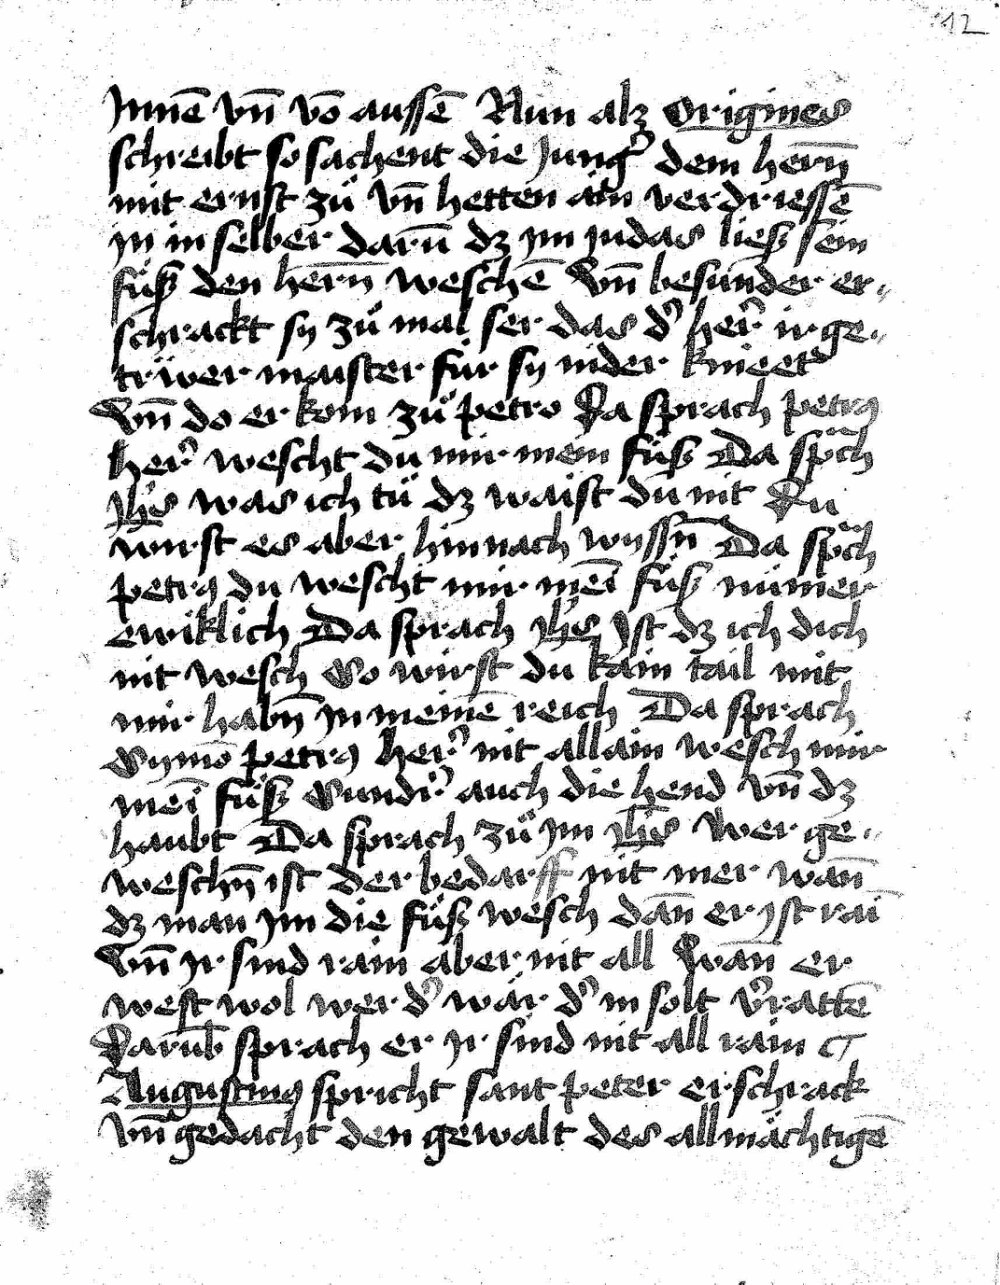 12
Jnnē vn̄ vō aussē Nun alz Origines
schreibt so sachent die Jungͤr dem hern̄
mit ernst zů vn̄ hetten ain verdriessē
in in selber darū dz im judas lies sein
fůß den hern̄ weschē Vn̄ besunder er-
schrackt sy zů mal ser das dˀ herˀ ir ge-
trüwer maister für sy nider knieetˀ
Vn̄ do er kom zů petro Da sprach petrꝯ
herˀ wescht du mir mein fůß Da sp̄ch
Jhs̄ was ich tů dz waist du nit Du
wirst es aber hinnach wyssn̄ Da sp̄ch
petrꝯ du wescht mir meī fůß nümer
ewiklich Da sprach Jhs̄ Jst dz ich dich
nit wesch So wirst du kain tail mit
mir habn̄ Jn meinē reich Da sprach
Symō petrꝯ herˀ nit allain wesch mir
meī fůß Sundˀ auch die hend vn̄ dz
haubt Da sprach zů Jm Jhs̄ Wer ge-
weschn̄ ist der bedarff nit mer wan̄
dz man Jm die fůß wesch dan̄ er Jst rai
Vn̄ Jr sind rain aber nit all Wan̄ er
west wol wer dˀ wär dˀ in solt vˀrattē
Darūb sprach er Jr sind nit all rain
Augustinꝯ spricht sant peter erschrack
vn̄ gedacht den gewalt des allmächtigē